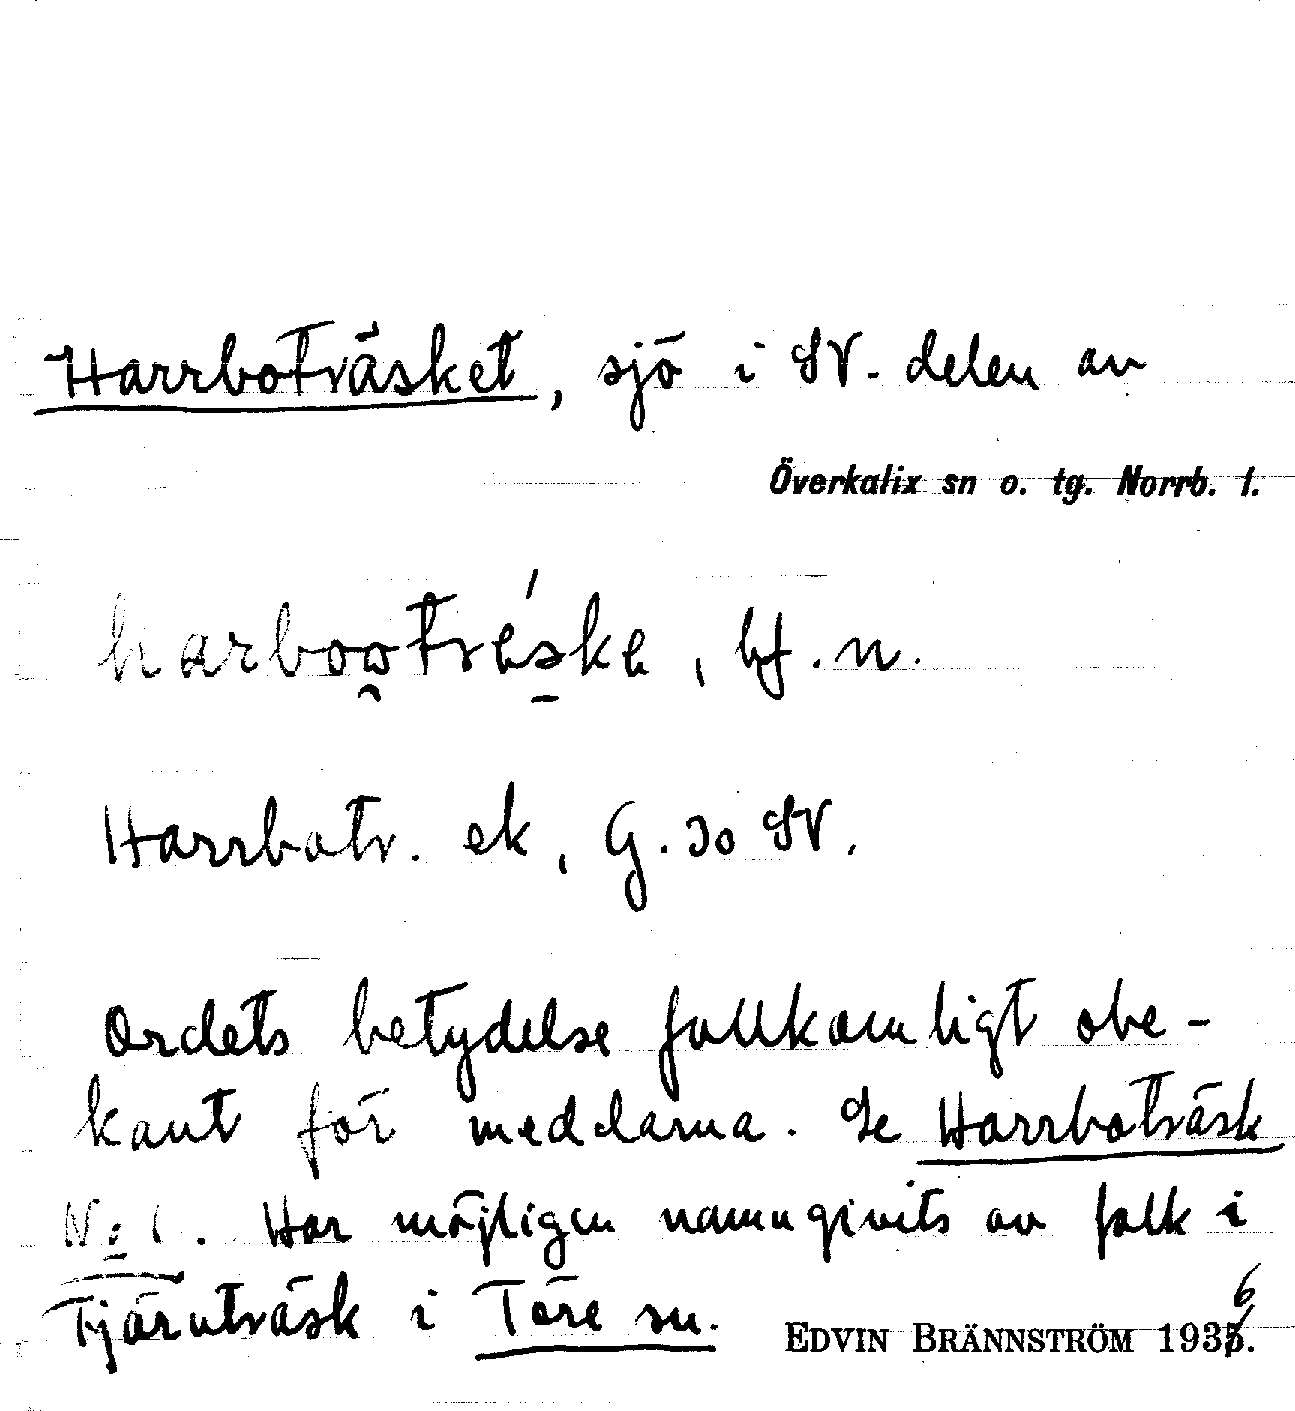 Harrboträsket, sjö i SV. delen av
Överkalix sn o. tg. Norrb. l.
harbootréske, bf. n.
Harrbotr. ek, G. 30 SV.
Ordets betydelse fullkomligt obe-
kant för meddelarna. Se Harrboträsk
No 1. Har möjligen namngivits av folk i
Tjärnträsk i Töre sn.
EDVIN BRÄNNSTRÖM 1936.